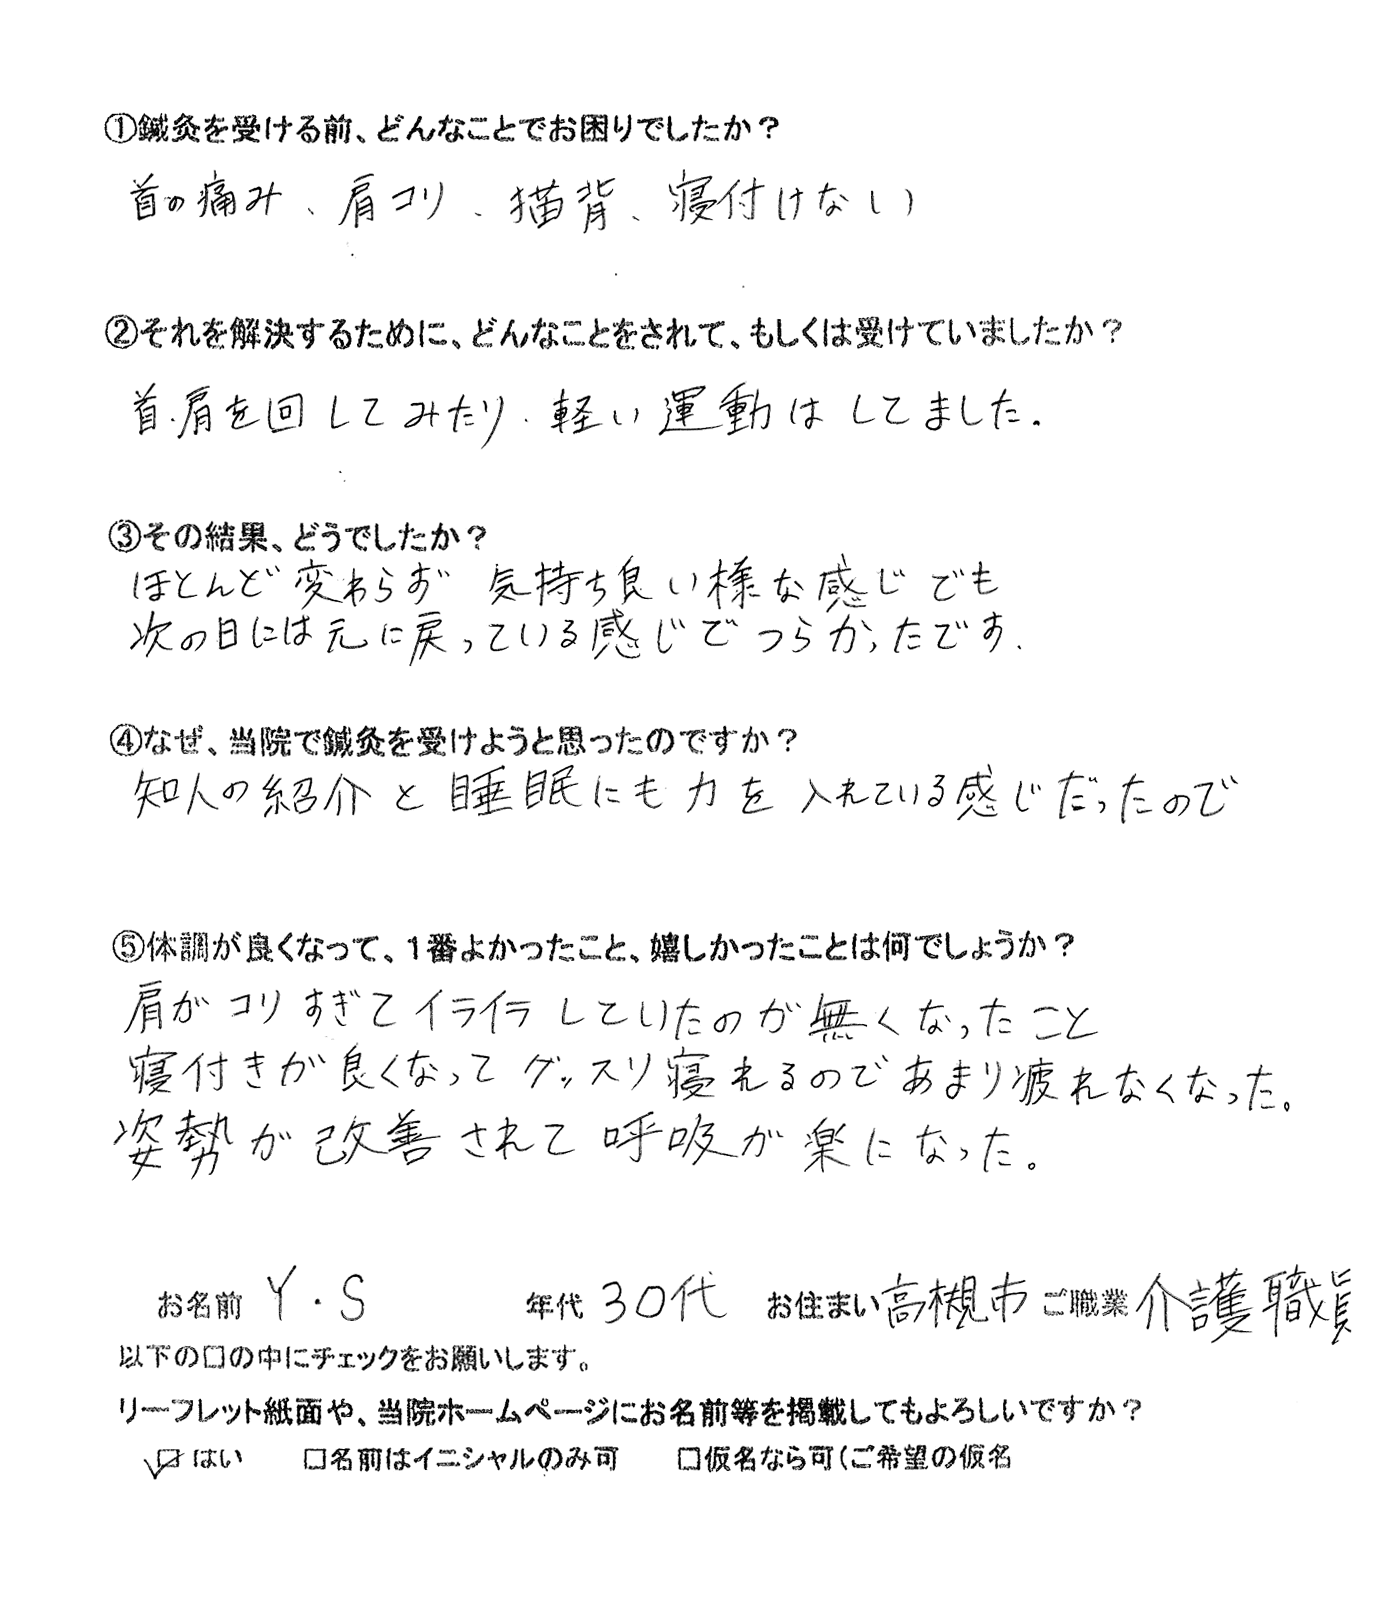 ①鍼灸を受ける前、どんなことでお困りでしたか？
首の痛み、肩コリ、猫背、寝付けない
②それを解決するために、どんなことをされて、もしくは受けていましたか？
首・肩を回してみたり、軽い運動はしてました.
③その結果、どうでしたか？
ほとんど変わらず 気持ち良い様な感じでも
次の日には元に戻っている感じでつらかったです.
④なぜ、当院で鍼灸を受けようと思ったのですか？
知人の紹介と睡眠にも力を入れている感じだったので
⑤体調が良くなって、１番よかったこと、嬉しかったことは何でしょうか？
肩がコリすぎてイライラしていたのが無くなったこと
寝付きが良くなってグッスリ寝れるのであまり疲れなくなった。
姿勢が改善されて呼吸が楽になった。
お名前 Y・S 年代 30代 お住まい 高槻市 ご職業 介護職員
以下の□の中にチェックをお願いします。
リーフレット紙面や、当院ホームページにお名前等を掲載してもよろしいですか？
☑はい □名前はイニシャルのみ可 □仮名なら可（ご希望の仮名